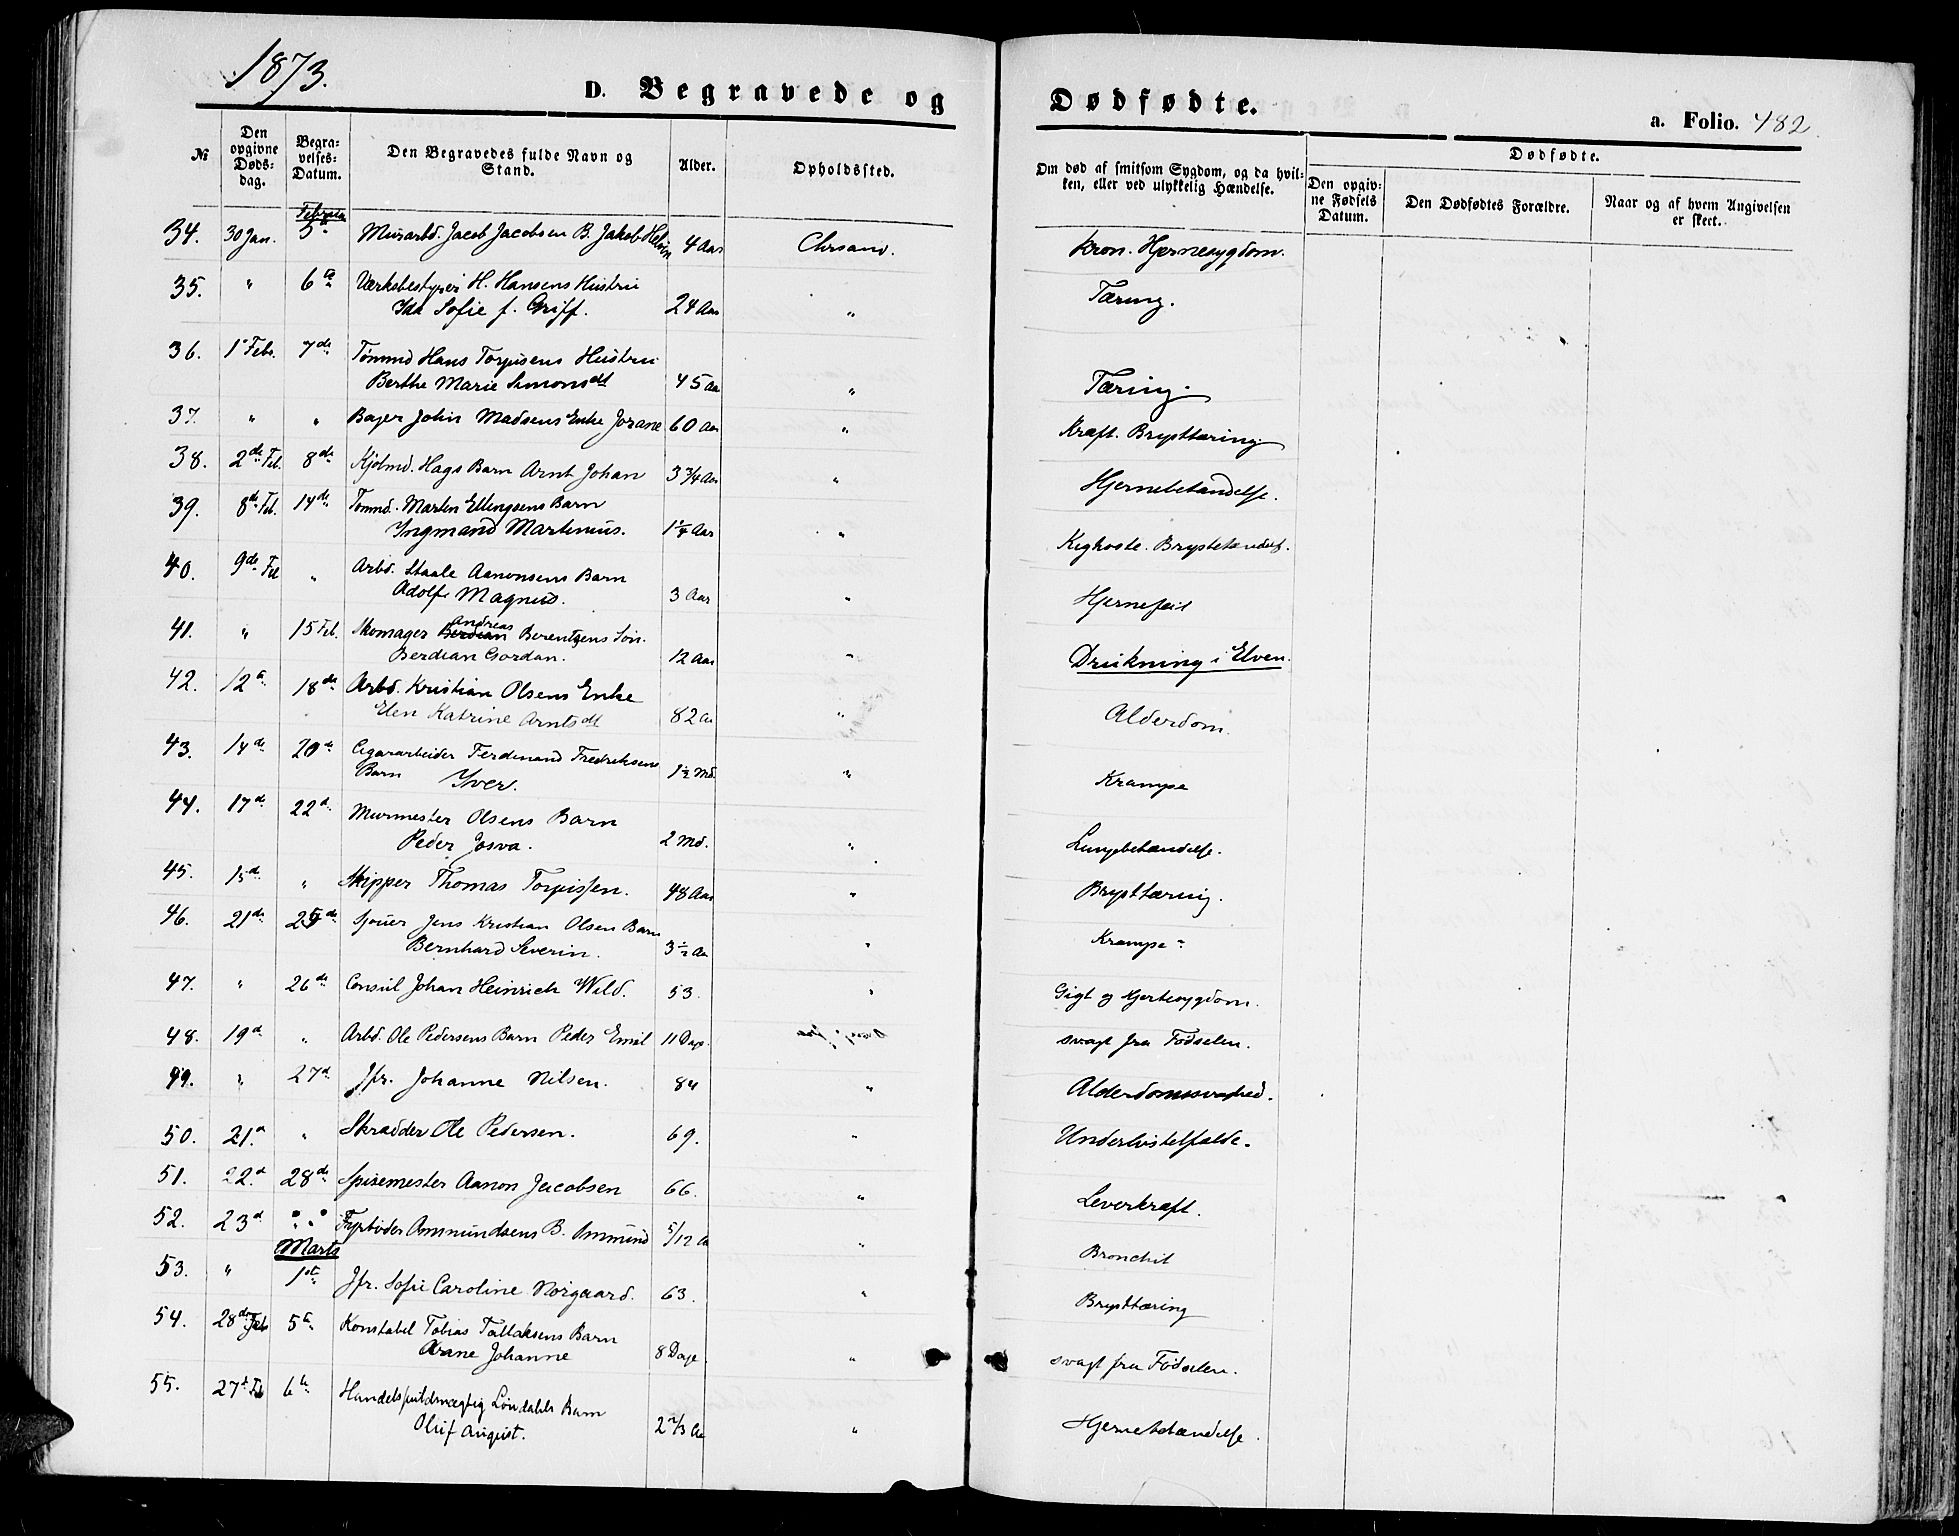 1873.
D. Begravede og Dødfødte.
a. Folio. 482.
№ Den opgivne Døds-dag. Begravelses-Datum. Den Begravedes fulde Navn og Stand. Alder. Opholdssted. Om død af smitsom Sygdom, og da hvilken, eller ved ulykkelig Hændelse. Dødfødte.
Den opgivne Fødsels Datum. Den Dødfødtes Forældre. Naar og af hvem Angivelsen er skeet.
Februar
34. 30 Jan. 5 Murarbd. Jacob Jacobsen B. Jakob 4 Aar Chrsand. kron. Hjernesygdom.
35. " 6te Værksbestyrer H. Hansens Hustru
Ida Sofie f. Griff. 24 Aar " Tæring.
36. 1 Febr. 7de Tømmd Hans Torjusens Hustru
Berthe Marie Simonsdt 45 Aar " Tæring.
37. " " Bager John Madsens Enke Jorane 60 Aar " Kræft. Brysttæring.
38. 2de Feb. 8de Kjølmd. Hags Barn Arnt Johan 3 3/4 Aar " Hjernebetændelse.
39. 8de Feb. 14de Tømmd. Marten Ellingsens Barn
Ingmand Martinius. 1 1/4 Aar " Kighoste. Brystbetændels.
40. 9de Feb " Arbd. Staale Aanonsens Barn
Adolf Magnus. 3 Aar " Hjernefeil
41. " 15 Feb. Skomager Andreas Berentzens Søn.
Berdian Gordan. 12 Aar " Drukning i Elven.
42. 12te 18de Arbd. Kristian Olsens Enke
Elen Katrine Arntsdt 82 Aar " Alderdom.
43. 14de 20de Cigararbeider Ferdinand Fredriksens
Barn Iver. 1 1/2 Md. " Krampe
44. 17de 22d. Murmester Olsens Barn
Peder Josva. 2 Md. " Lungebetændelse.
45. 15d. " Skipper Thomas Torjussen. 48 Aar " Brysttæring.
46. 21de 25de Sjouer Jens Kristian Olsen Barn
Bernhard Severin. 3 1/2 Aar " Krampe
47. " 26de Consul Johan Heinrich Wild. 53. " Gigt og Hjertesygdom.
48. 19d " Arbd. Ole Pedersens Barn Peder Emil 11 Dage. svagt fra Fødselen.
49. " 27d Jfr. Johanne Nilsen. 84 " Alderdomssvaghed.
50. 21d " Skrædder Ole Pedersen. 69. " Underlivstilfælde.
51. 22d 28de Spisemester Aanon Jacobsen 66. " Leverkræft.
52. 23d " " Fyrbøder Ammundsens B. Ommund 5/12 Aa " Bronchit
Marts
53. " 1st Jfr. Sofie Caroline Nørgaard. 63. " Brysttæring
54. 28de Feb 5te Konstabel Tobias Tallaksens Barn
Arane Johanne 8 Dage. " svagt fra Fødselen.
55. 27d Feb 6te Handelsfuldmægtig Løvdahls Barn
Oluf August. 2 2/3 Aa " Hjernebetændelse.